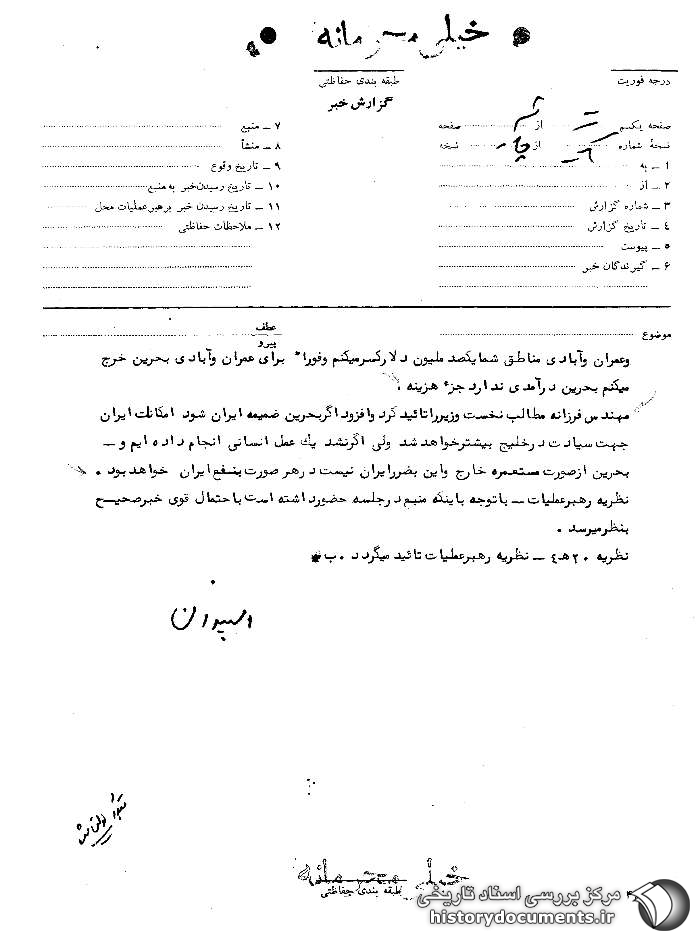 خیلی محرمانه
درجه فوریت
طبقه بندی حفاظتی
گزارش خبر
صفحه یکسم از صفحه
نسخهٔ شماره از چهار نسخه
۱ ـ به
۲ ـ از
۳ ـ شماره گزارش
٤ ـ تاریخ گزارش
٥ ـ پیوست
٦ ـ گیرندگان خبر
۷ ـ منبع
۸ ـ منشأ
۹ ـ تاریخ وقوع
۱۰ ـ تاریخ رسیدن خبر به منبع
۱۱ ـ تاریخ رسیدن خبر برهبر عملیات محل
۱۲ ـ ملاحظات حفاظتی
موضوع
عطف
پیرو
وعمران وآبادی مناطق شما یکصد ملیون دلار کسر میکنم وفورا" برای عمران وآبادی بحرین خرج
میکنم بحرین درآمدی ندارد جزء هزینه .
مهندس فرزانه مطالب نخست وزیر را تائید کرد وافزود اگر بحرین ضمیمه ایران شود امکانات ایران
جهت سیادت در خلیج بیشتر خواهد شد ولی اگر نشد یك عمل انسانی انجام داده ایم و ـ
بحرین از صورت مستعمره خارج واین بضرر ایران نیست در هر صورت بنفع ایران خواهد بود .
نظریه رهبر عملیات ـ با توجه باینکه منبع در جلسه حضور داشته است با احتمال قوی خبر صحیح
بنظر میرسد .
نظریه ۲۰ هـ ٤ ـ نظریه رهبر عملیات تائید میگردد . ب
خیلی محرمانه
طبقه بندی حفاظتی
مرکز بررسی اسناد تاریخی
historydocuments.ir